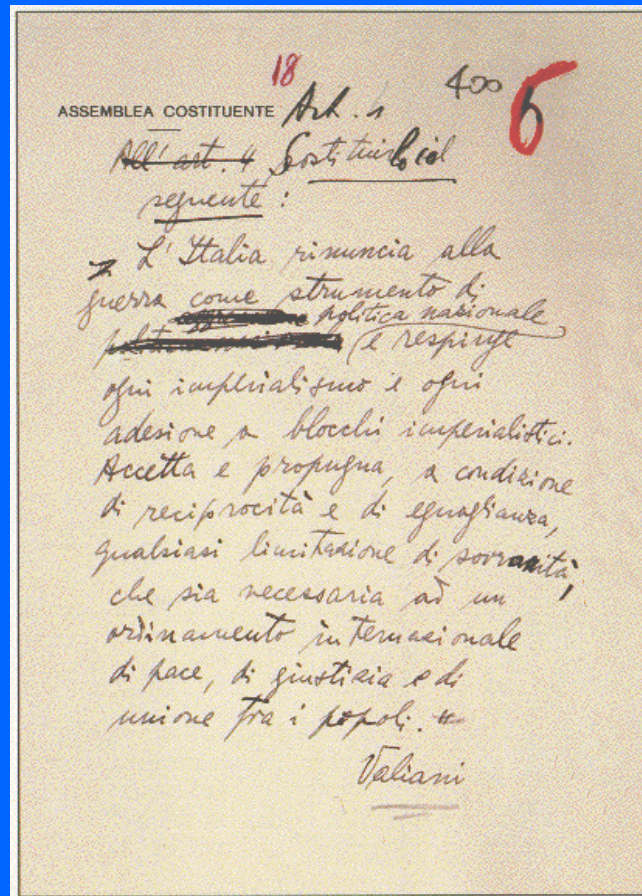 18
400 6
ASSEMBLEA COSTITUENTE Art. 4
All' art. 4 Sostituirlo col
seguente :
" L'Italia rinuncia alla
guerra come strumento di
politica nazionale
e respinge
ogni imperialismo e ogni
adesione a blocchi imperialistici.
Accetta e propugna, a condizione
di reciprocità e di eguaglianza,
qualsiasi limitazione di sovranità,
che sia necessaria ad un
ordinamento internazionale
di pace, di giustizia e di
unione fra i popoli. "
Valiani